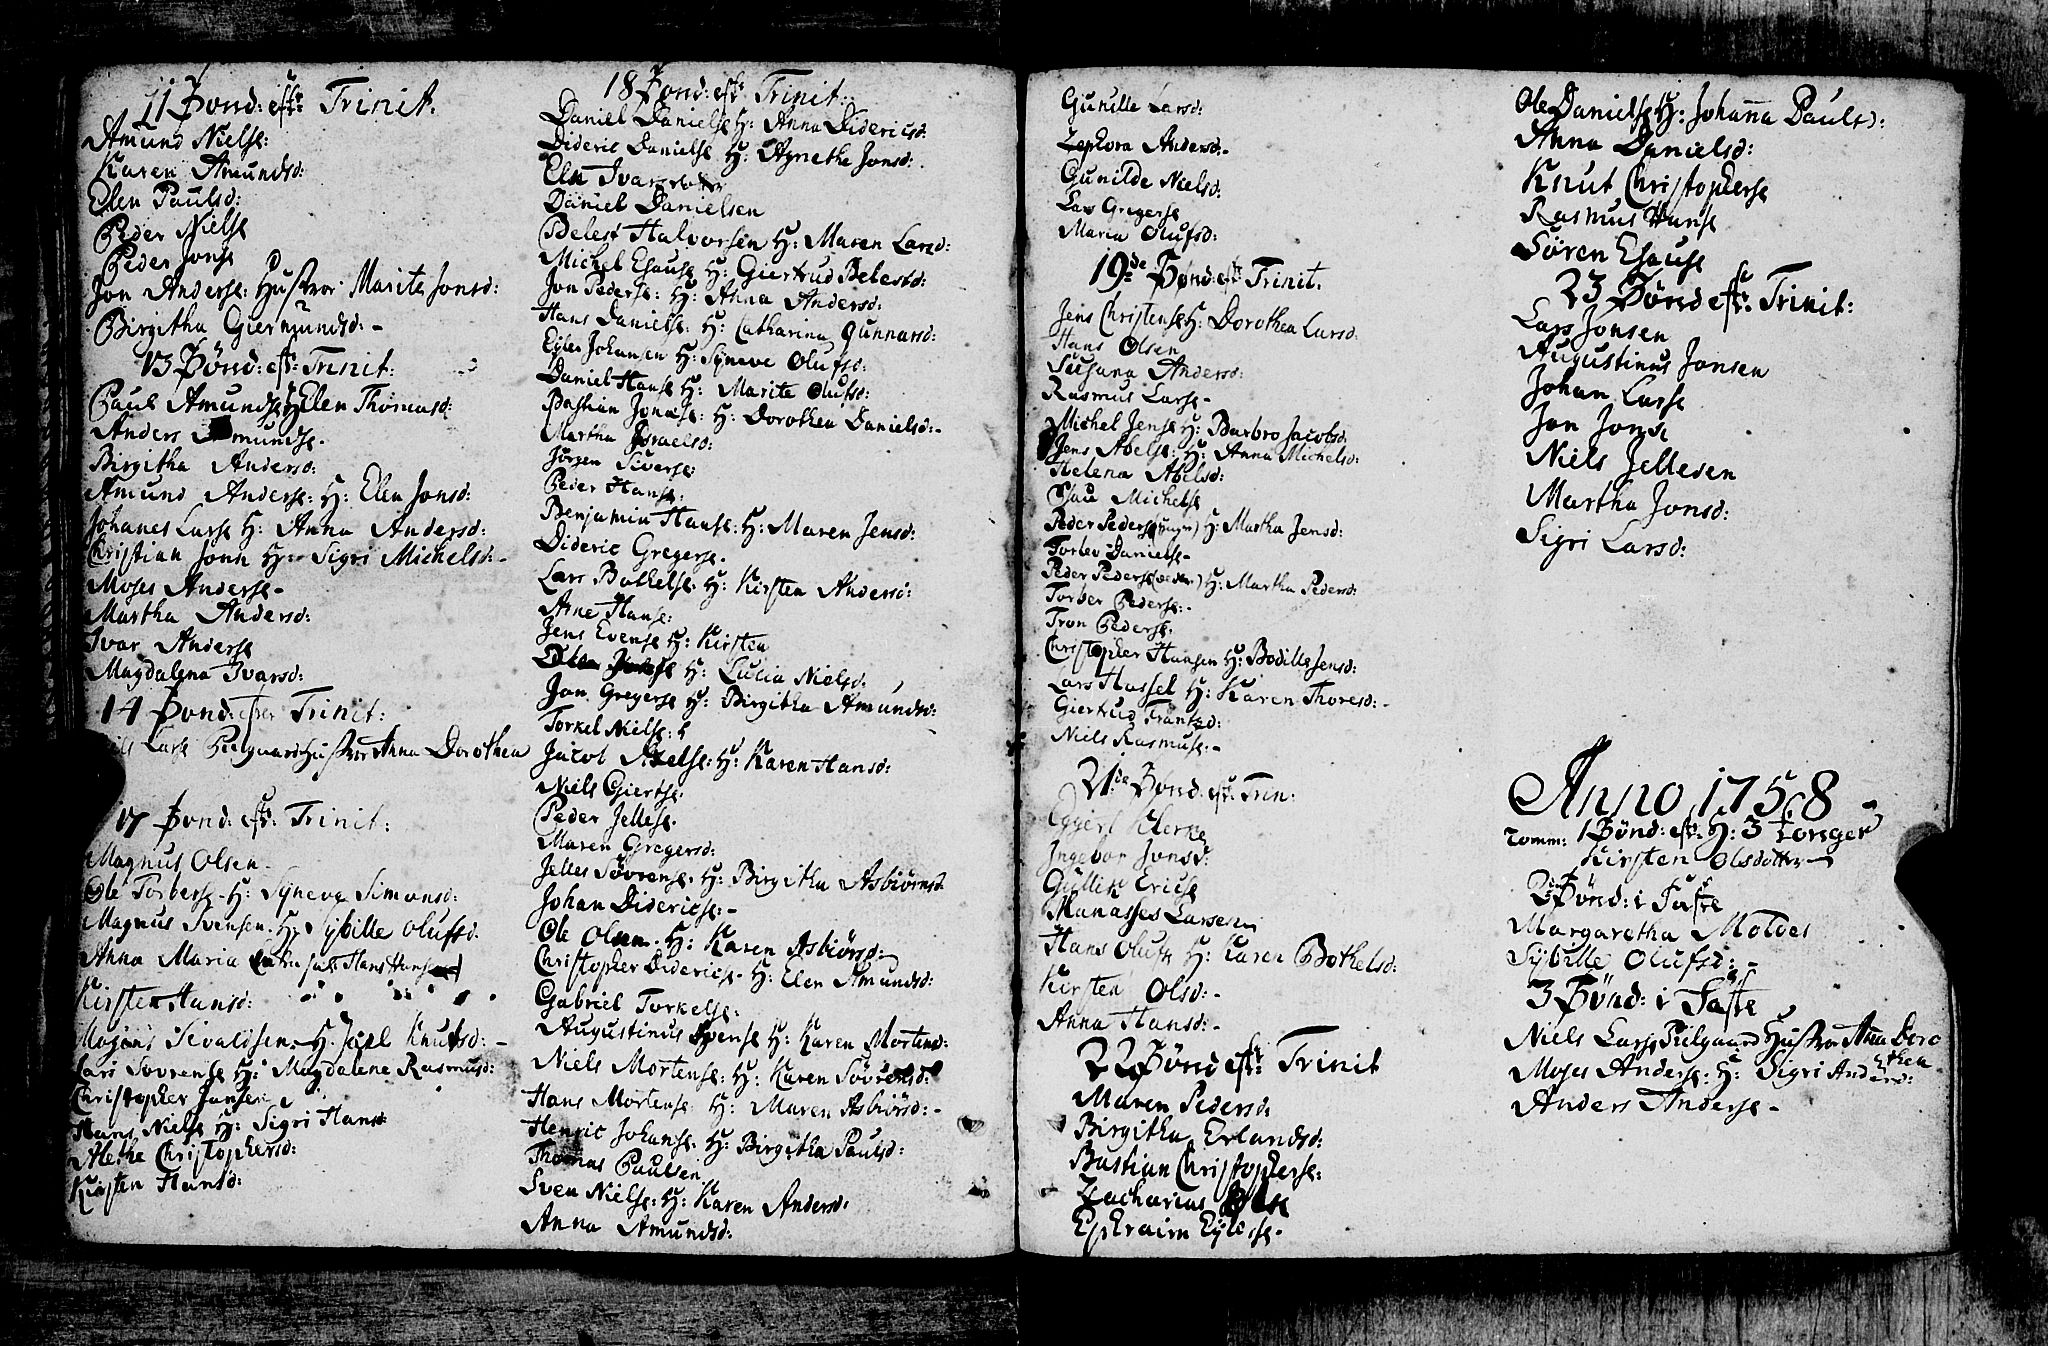 11 Sønd: eft: Trinit.
Amund Nielse:
Karen Amundsd:
Elen Paulsd:
Peder Nielse
Peder Jonse
Jon Anderse: Hustroe Marite Jonsd:
Birgitha Giermundsd: -
13 Sønd: eft: Trinit:
Paul Amundse H: Elen Thomasd:
Anders Amundse.
Birgitha Andersd:
Amund Anderse: H: Elen Jonsd:
Johanes Larse H: Anna Andersd:
Christian Jonn H: Sigri Michelsd: -
Moses Anderse -
Martha Andersd:
Ivar Anderse
Magdalena Ivarsd:
14 Sønd: efter Trinit:
Larse Pielgaard Hustroe Anna Dorothea
17 Sønd: eft: Trinit:
Magnus Olsen -
Ole Torberse - H: Syneve Simonsd:
Magnus Svensen. H: Sybille Olufsd.
Anna Maria Hans
Kirsten Hansd:
Mogens Sevaldsen H. Knutsd: -
Lars Sovrense H: Magdalene Rasmusd:
Christopher Jansen
Hans Nielse H: Sigri Hansd
Methe Christophersd:
Kirsten Hansd:
18 Sønd: eft: Trinit:
Daniel Danielse H: Anna Didericsd.
Dideric Danielse H: Agnetha Jonsd:
Eln Ivarsdotter
Daniel Danielsen
Belest Halvorsen H: Maren Larsd:
Michel Esause H: Giertrud Belestsd:
Jon Pederse: H: Anna Andersd:
Hans Danielse: H: Catharina Gunnarsd:
Eyler Johansen H: Syneve Olufsd:
Daniel Hanse H: Marite Olufsd:
Bastian Jonase: H: Dorothea Danielsd: -
Martha Israelsd:
Jörgen Siverse:
Peder Hanse:
Benjamin Hanse: H: Maren Jensd:
Dideric Gregerse.
Lars Bothelse. H: Kirsten Andersd:
Arne Hanse:
Jens Evense H: Kirsten
H: Lucia Nielsd:
Jan Gregerse H: Birgitha Amundsd:
Torkel Nielse:
Jacob Axelse: H: Karen Hansd:
Niels Giertse.
Peder Jellese.
Maren Gregersd:
Jelles Sövrense. H: Birgitha Asbiörnsd
Johan Didericse: -
Ole Olsen. H: Karen Asbiörsd:
Christopher Didericse - H: Elen Amundsd:
Gabriel Torkelse:
Augustinus Svense H: Karen Mortensd:
Niels Mortense: H: Karen Sövrensd:
Hans Mortense H: Maren Asbiörsd: -
Henric Johanse. H: Birgitha Paulsd:
Thomas Paulsen
Sven Nielse: H: Karen Andersd:
Anna Amundsd:
Gunille Larsd:
Zephora Andersd: -
Gunilde Nielsd:
Lars Gregerse
Maria Olufsd:
19de Sønd: eft: Trinit.
Jens Christense H: Dorothea Larsd.
Hans Olsen
Susana Andersd:
Rasmus Larse -
Michel Jense H: Barbro Jacobsd.
Jens Abelse: H: Anna Michelsd:
Helena Abelsd:
Esau Michelse
Peder Pederse (yngre) H: Martha Jensd:
Torber Danielse -
Peder Pederse H: Martha Pedersd:
Torber Pederse: -
Tron Pederse.
Christopher Hansen H: Bodille Jensd:
Lars Hassel H: Karen Thoresd: -
Giertrud Frantzd:
Niels Rasmuse: -
21de Sønd: eft: Trin:
Eggert Klerke
Ingebor Jonsd:
Gullik Ericse
Manasses Larsen
Hans Olufse H: Karen Bothelsd:
Kirsten Olsd: -
Anna Hansd: -
22 Sønd eft: Trinit
Maren Pedersd.
Birgitha Erlandsd:
Bastian Christopherse:
Zacharias
Ephraim Eylerse.
Ole Danielse H: Johanna Paulsd:
Anna Danielsd:
Knut Christopherse
Rasmus Hanse
Sören Esause
23 Sønd eft: Trinit:
Lars Jonsen
Augustinus Jonsen
Johan Larse
Jon Jonse
Niels Jellesen
Martha Jonsd:
Sigri Larsd:
Anno 1758
1 Sønd: eft: H: 3 Konger
Kirsten Olsdotter
2 Sønd: i Faste
Margaretha Moldes
Sybille Olufsd: -
3 Sønd: i Faste
Niels Larse Pielgaard Hustroe Anna Doro
thea.
Moses Anderse: H: Sigri Andersd:
Anders Anderse -